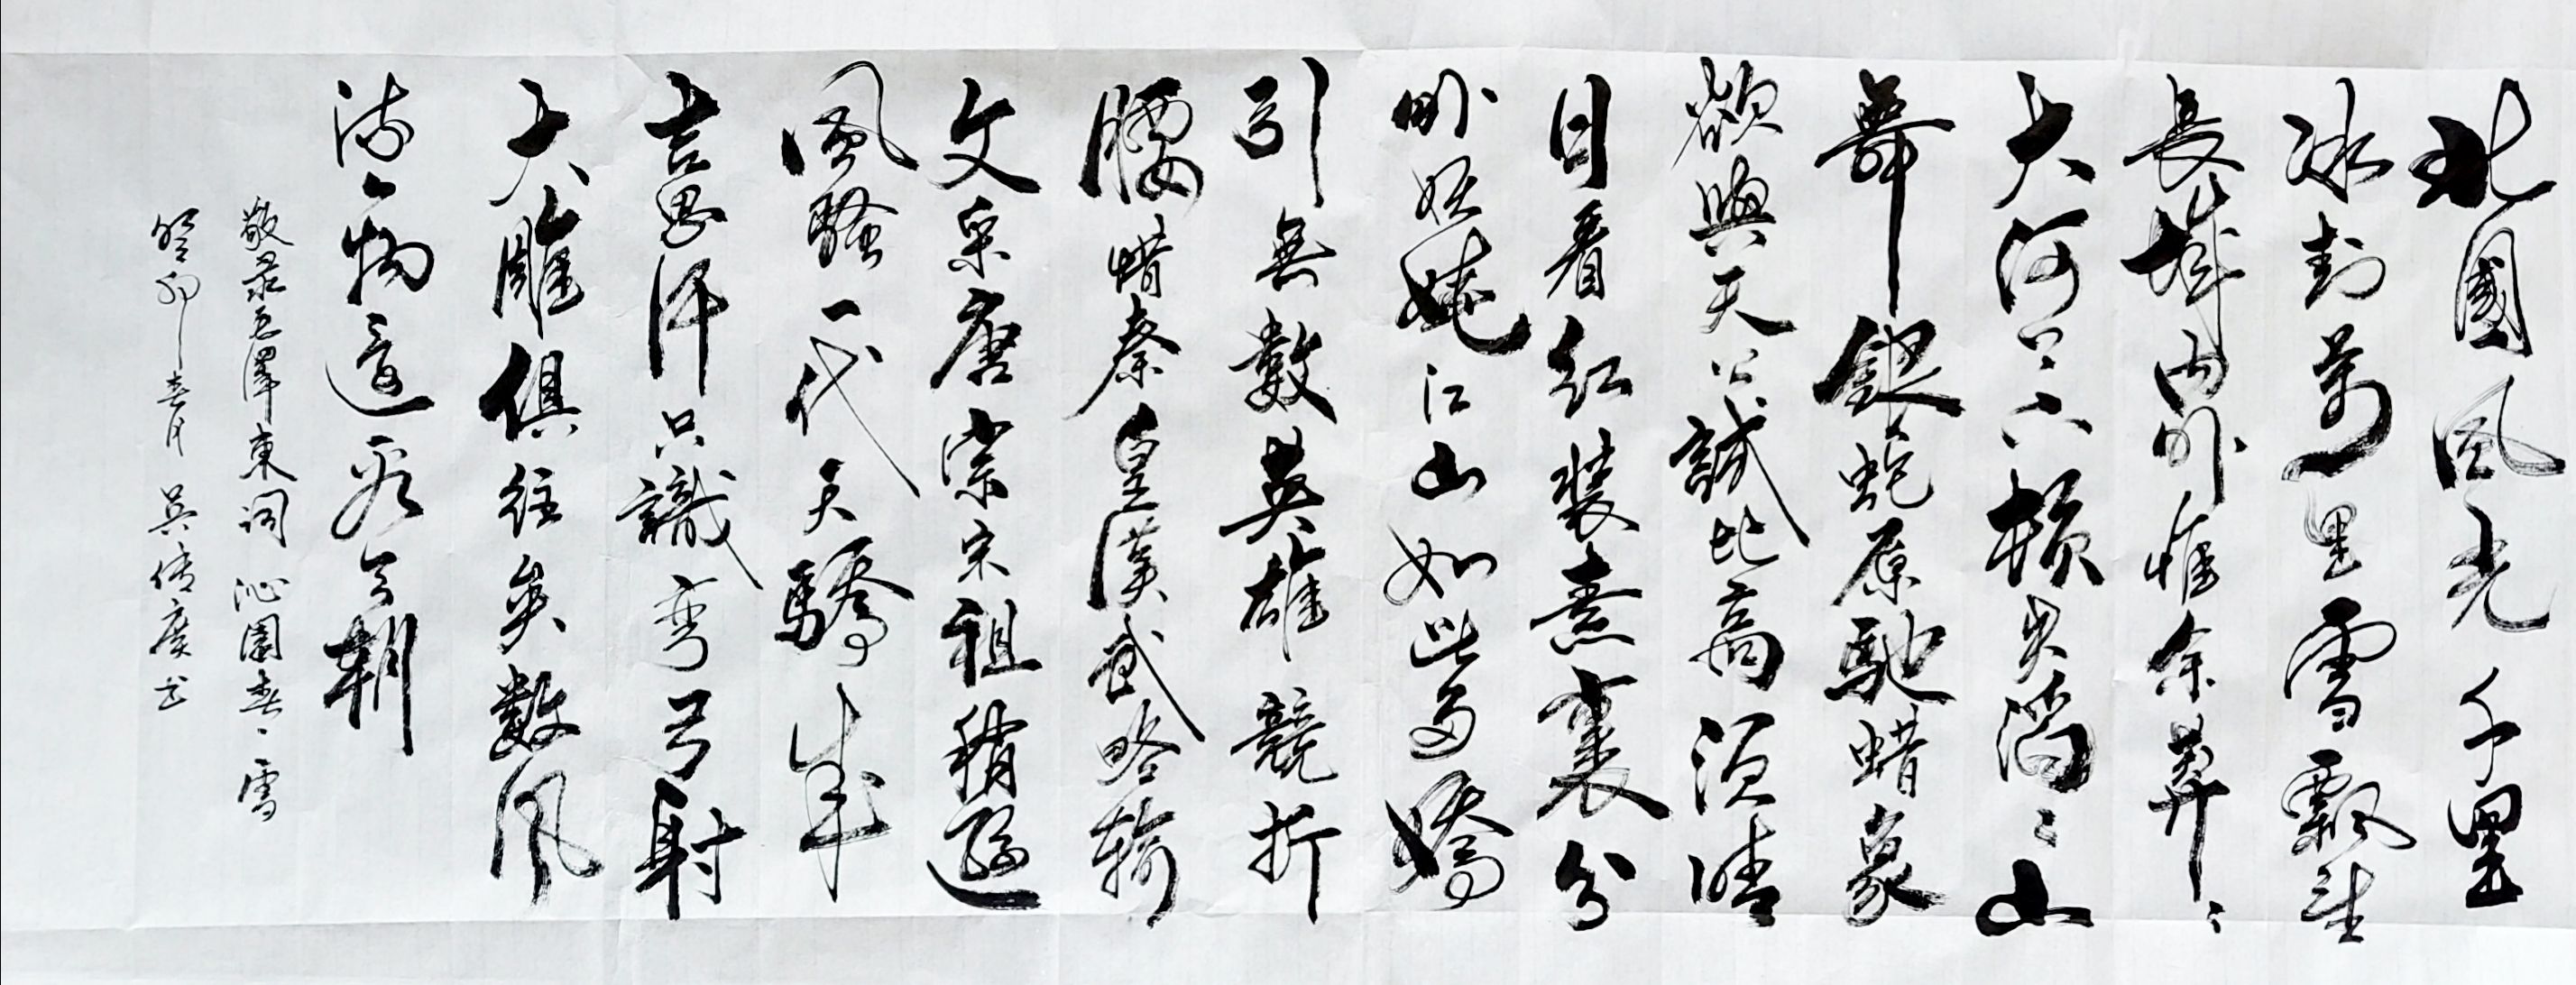 北國風光千里
冰封萬里雪飄望
長城内外惟余莽〻
大河上下頓失滔〻山
舞銀蛇原馳蜡象
欲與天公試比高須晴
日看紅裝素裹分
外妖嬈江山如此多嬌
引無數英雄競折
腰惜秦皇漢武略輸
文采唐宗宋祖稍遜
風騷一代天驕成
吉思汗只識弯弓射
大雕俱往矣數風
流人物還看今朝
敬录毛澤東詞 沁園春、雪
癸卯春月 吳书